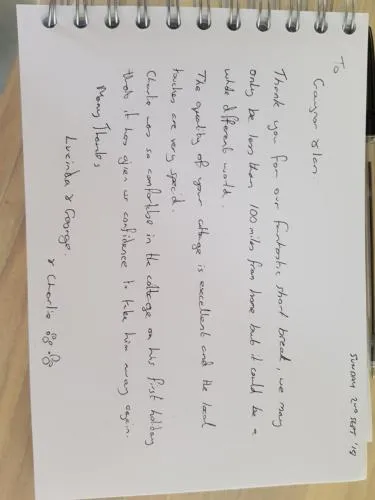 SUNDAY 2ND SEPT '18
To
Gaynor & Ian
Thank you for our fantastic short break, we may
only be less than 100 miles from home but it could be a
whole different world.
The quality of your cottage is excellent and the local
touches are very special.
Charlie was so comfortable in the cottage on his first holiday
that it has given us confidence to take him away again.
Many Thanks
Lucinda & George.
& Charlie